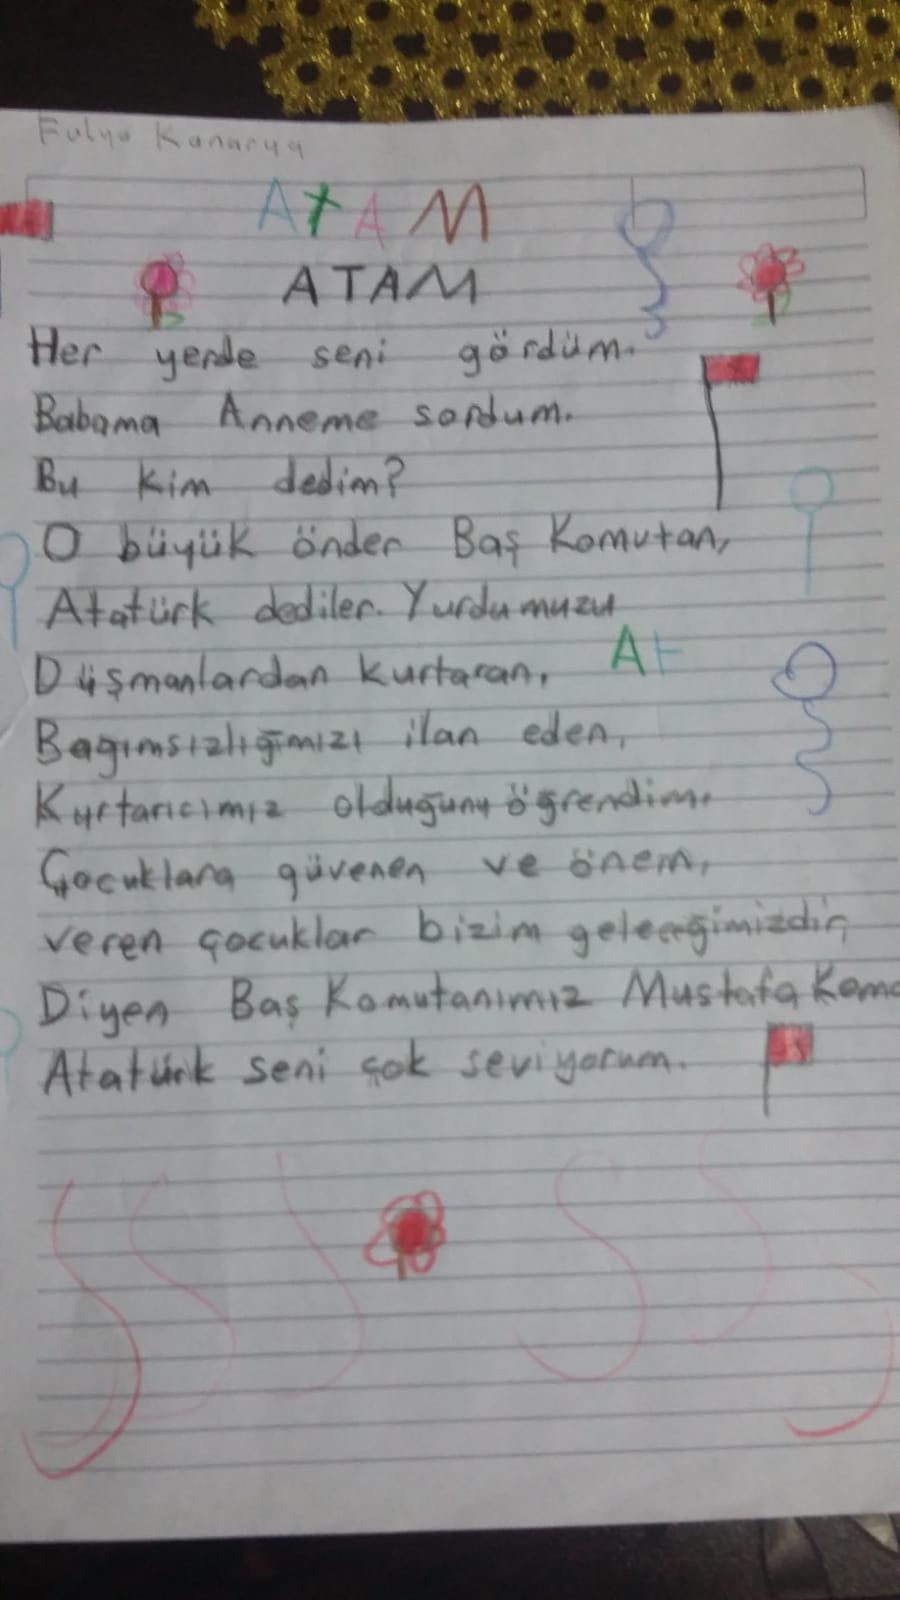 Fulya Kanarya
ATAM
ATAM
Her yerde seni gördüm.
Babama Anneme sordum.
Bu kim dedim?
O büyük önder Baş Komutan,
Atatürk dediler. Yurdumuzu
At
Düşmanlardan kurtaran,
Bağımsızlığımızı ilan eden,
Kurtarıcımız olduğunu öğrendim.
Çocuklara güvenen ve önem,
veren çocuklar bizim geleceğimizdir,
Diyen Baş Komutanımız Mustafa Kema
Atatürk seni çok seviyorum.